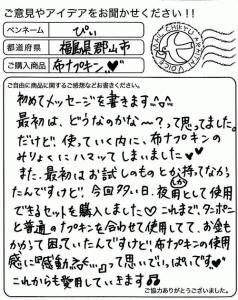 ご意見やアイデアをお聞かせください!!
ペンネーム ぴぃ
都道府県 福島県郡山市
ご購入商品 布ナプキン
ご自由に商品に関するご感想などお書きください。
初めてメッセージを書きます^^
最初は、どうなのかな〜?って思ってました。
だけど、使っていく内に、布ナプキンの
みりょくにハマッてしまいました♡
また、最初はお試しのものとか持ってなかっ
たんですけど、今回多い日、夜用としても使用
できるセットを購入しました♡ これまで、タンポン
と普通のナプキンを合わせて使用してて、お金も
かかって困っていたんですけど、布ナプキンの使用
感に『感動』って思いでいっぱいです♥
これからも愛用していきます♫
ご協力ありがとうございました。